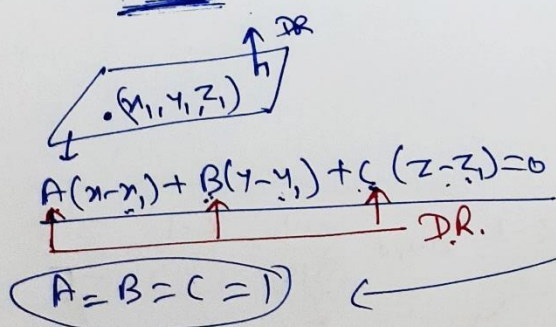 DR
n
.(x₁, y₁, z₁)
A(x-x₁) + B(y-y₁) + C(z-z₁)=0
D.R.
A = B = C = 1